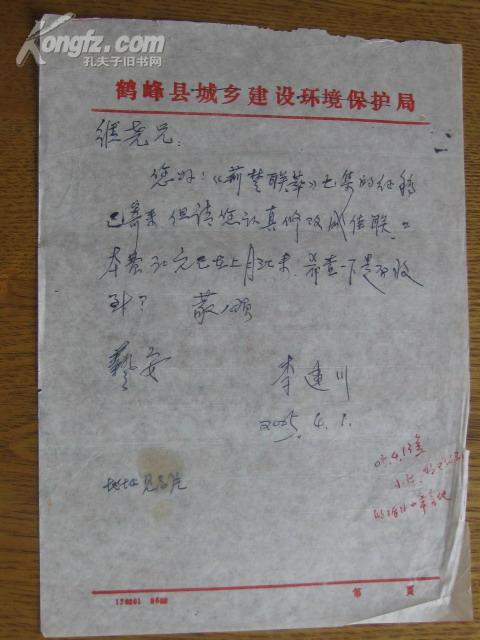 Kongfz.com
孔夫子旧书网
鹤峰县城乡建设环境保护局
继尧兄:
您好!《荊楚联萃》七集的征稿
已寄来 但请您认真修改成佳联。二
本费 元已在上月汇来. 希查一下是否收
到? 敬颂
艺安
李建川
2005.4.1.
地址见名片
05.4.13
第 页